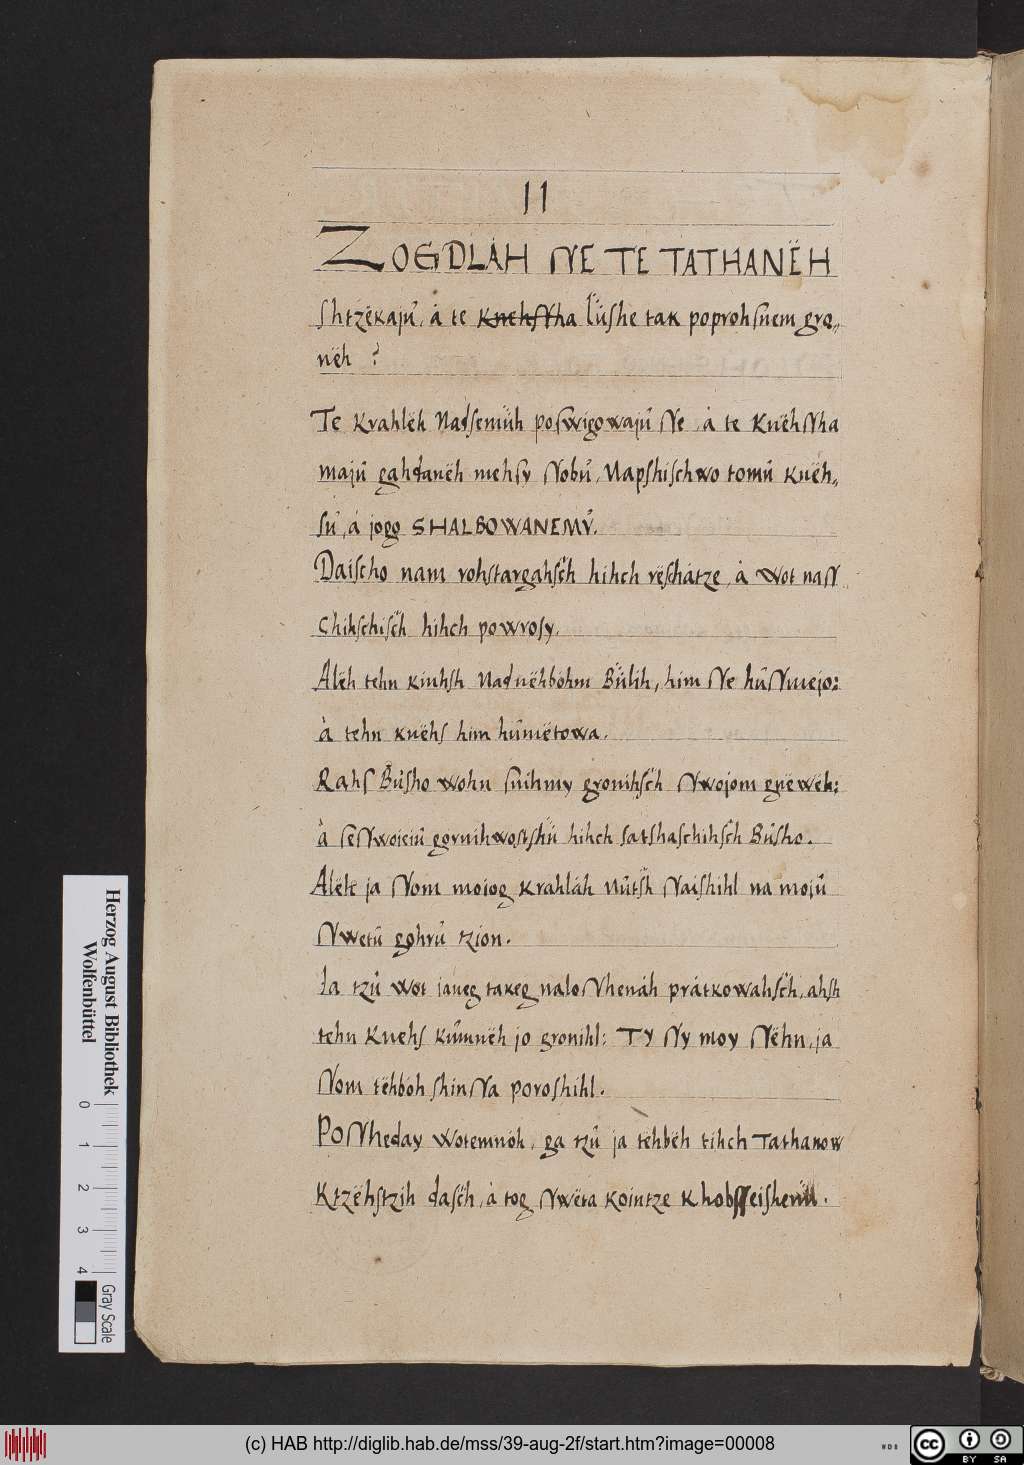 II
ZOGDLAH NE TE TATHANËH
shtzëkajů, à te lůshe tak poprohsnem gro„
nëh ?
Te Krahlëh Nadsemüh poswigowajů Ne, à te KnëhNha
majů gahdanëh mehsy Nobů, Napshischwo tomů knëh„
sů, à jogo SHALBOWANEMŮ.
Daischo nam rohstargahsčh hihch rëschàtze, à wot naN
Chihschisčh hihch powrosy.
Alëh tehn kinhsh Nadnëhbohm Bůlih, him Ne hůNmejo:
à tehn knëhs him hůmëtowa.
Rahs Bůsho wohn snihmy gronihsčh Nwojom gnëwëh:
à seNwojeiů gornihwostshů hihch satshaschihsčh Bůsho.
Alëh ja Nom mojog Krahlàh Nůtsh Naishihl na mojů
Nwetů gohrů rzion.
Ja tzů wot janeg takeg naloNhenàh pràtkowahsčh, ahsh
tehn Knehs kůmnëh jo gronihl: TY Ny moy Nëhn, ja
Nom tëhboh shinNa poroshihl.
PONheday wotemnöh, ga tzů ja tëhbëh tihch Tathanow
Ktzëhstzih dasčh, à tog Nwëta kointze k hobsseishenů.
Herzog August Bibliothek
Wolfenbüttel
0 1 2 3 4
Gray Scale
(c) HAB http://diglib.hab.de/mss/39-aug-2f/start.htm?image=00008
WDB
cc
BY SA